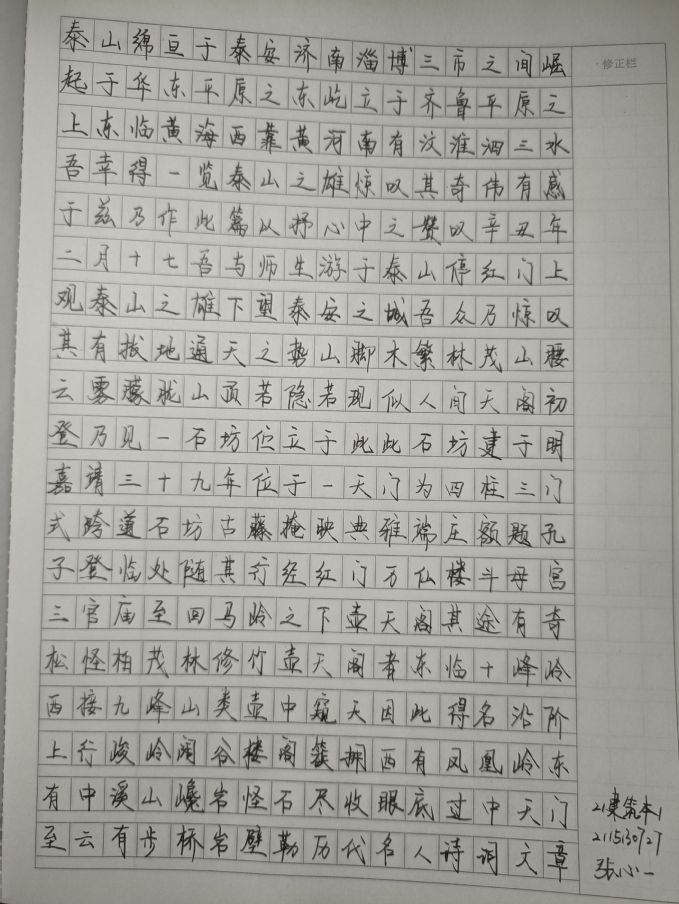 修正栏
泰山绵亘于泰安济南淄博三市之间崛
起于华东平原之东屹立于齐鲁平原之
上东临黄海西靠黄河南有汶淮泗三水
吾幸得一览泰山之雄惊叹其奇伟有感
于兹乃作此篇以抒心中之赞叹辛丑年
二月十七吾与师生游于泰山停红门上
观泰山之雄下望泰安之城吾众乃惊叹
其有拔地通天之势山脚木繁林茂山腰
云雾朦胧山顶若隐若现似人间天阁初
登乃见一石坊位立于此此石坊建于明
嘉靖三十九年位于一天门为四柱三门
式跨道石坊古藤掩映典雅端庄额题孔
子登临处随其行经红门万仙楼斗母宫
三官庙至回马岭之下壶天阁其途有奇
松怪柏茂林修竹壶天阁者东临十峰岭
西接九峰山类壶中窥天因此得名沿阶
上行峻岭阔谷楼阁簇拥西有凤凰岭东
有中溪山巉岩怪石尽收眼底过中天门
至云有步桥岩壁勒历代名人诗词文章
21建筑本1
2115130727
张心一